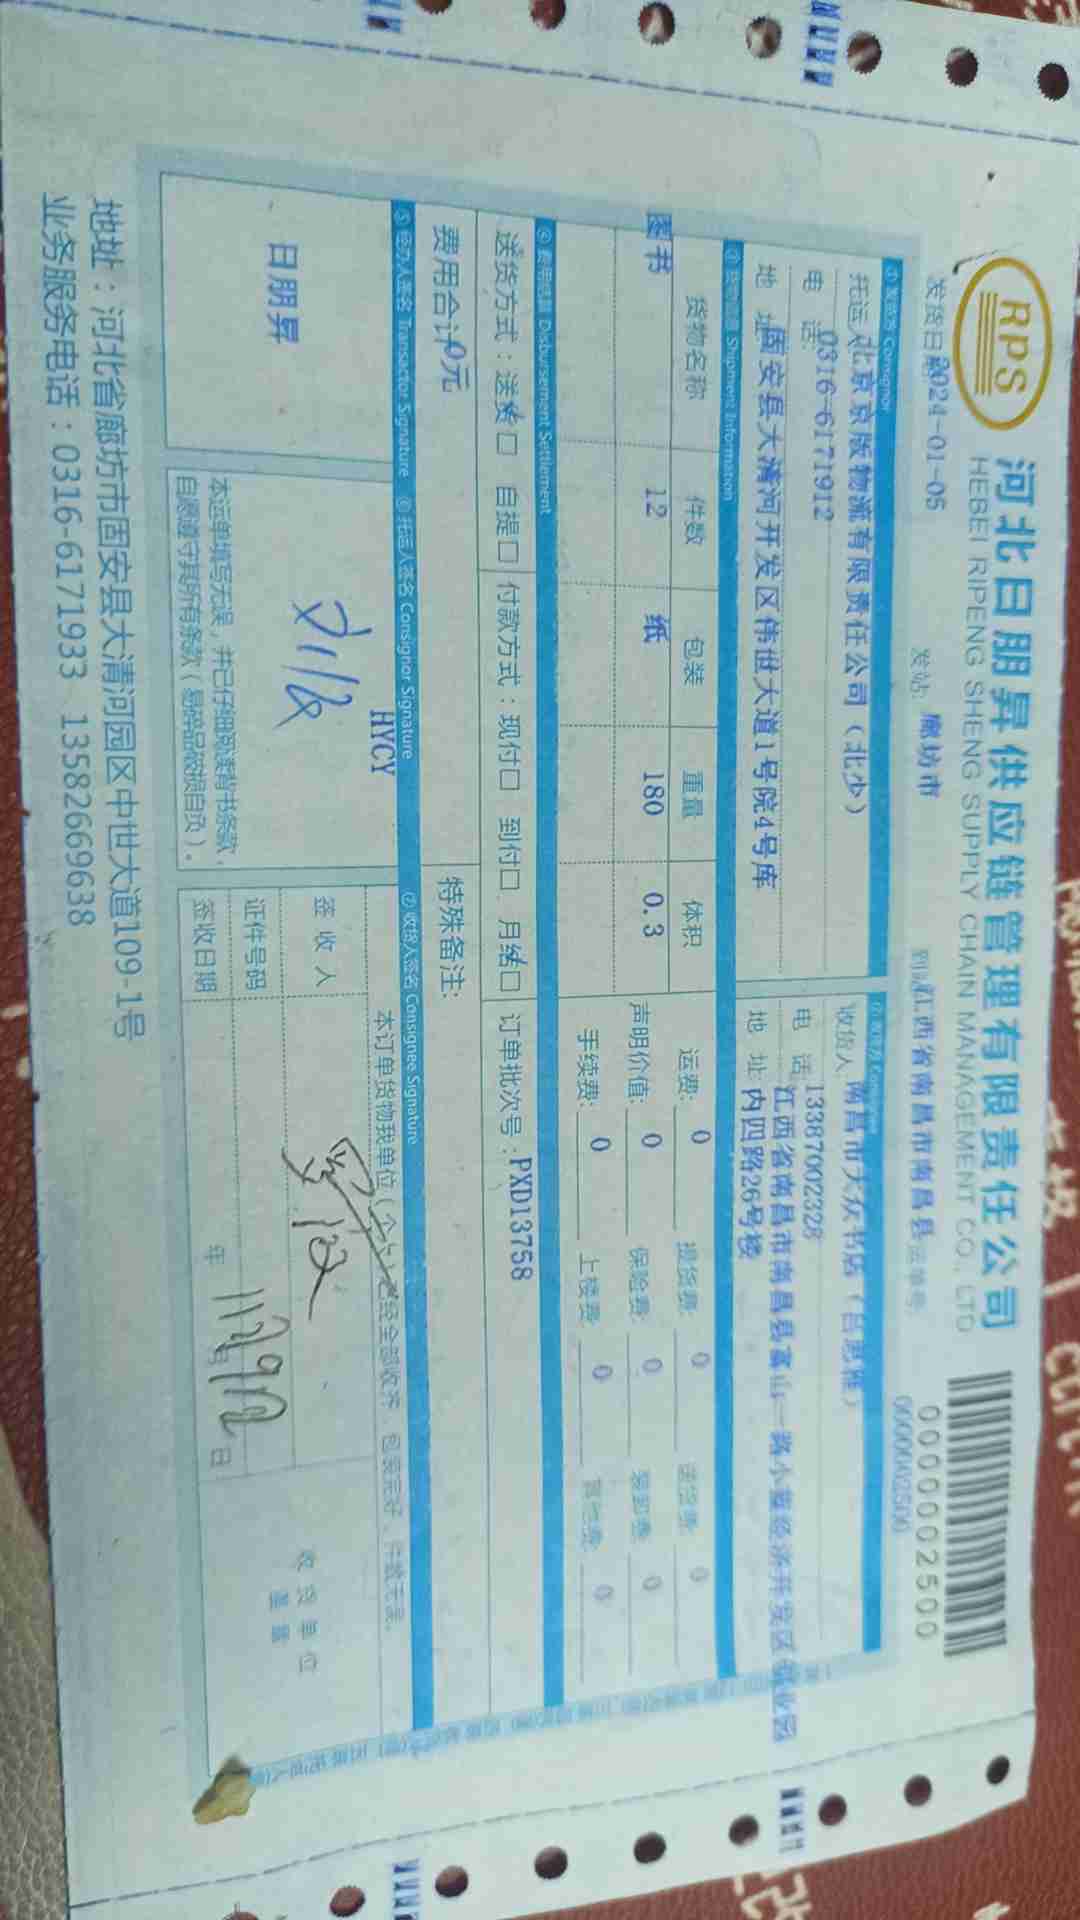 RPS
河北日朋昇供应链管理有限责任公司
HEBEI RIPENG SHENG SUPPLY CHAIN MANAGEMENT CO. LTD
0000002500
0000002500
发货日期 2024-01-05 发站: 廊坊市 江西省南昌市南昌县 运单号:
① 发货方 Consignor
托运人 北京京版物流有限责任公司（北少） 收货人 南昌市大众书店
电 话: 0316-6171912 电 话: 13387002328
地 址 固安县大清河开发区伟世大道1号院4号库 地 址: 江西省南昌市南昌县富山一路小蓝经济开发区创业园
内四路26号楼
③ 货物信息 Shipment Information
货物名称 件数 包装 重量 体积 运费: 0 提货费: 0 送货费: 0
图书 12 纸 180 0.3 声明价值: 0 保险费: 0 装卸费: 0
手续费: 0 上楼费: 0 其他费: 0
④ 费用结算 Disbursement Settlement
送货方式：送货□ 自提□ 付款方式：现付□ 到付□ 月结□ 订单批次号：PXD13758
费用合计 0元 特殊备注:
⑤ 经办人签名 Transactor Signature ⑥ 托运人签名 Consignor Signature ⑦ 收货人签名 Consignee Signature
日朋昇
HYCY
本运单填写无误，并已仔细阅读背书条款，
自愿遵守其所有条款（易碎品破损自负）。
本订单货物我单位（个人）已经全部收齐，包装完好，件数无误。
签 收 人
证件号码
签收日期 年 月 日
收 货 单 位
盖 章
地址：河北省廊坊市固安县大清河园区中世大道109-1号
业务服务电话：0316-6171933 13582669638